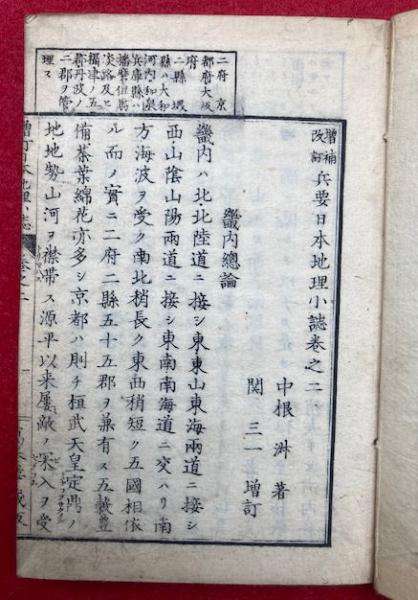 二府京
都府大坂
府
二縣堺
縣ハ大和
河內和泉
兵庫縣ハ
播磨但馬
淡路及ヒ
攝津ノ五
郡丹波ノ
二郡ヲ管
理ス
增補
改訂 兵要日本地理小誌卷之二
中根淑 著
関 三一 增訂
畿內總論
畿內ハ北・北陸道ニ接シ東・東山東海兩道ニ接シ
西・山陰山陽兩道ニ接シ東南・南海道ニ交ハリ南
方海波ヲ受ク南北稍長ク東西稍短ク五國相依
ル而ノ實ニ二府二縣五十五郡ヲ兼有ス五穀豊
備茶葉綿花亦多シ京都ハ則チ桓武天皇定鼎ノ
地地勢山河ヲ襟帶ス源平以来屢敵ノ突入ヲ受
增訂日本地理小誌 卷之二